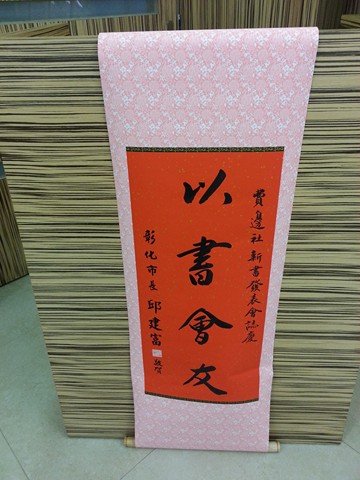 費邊社新書發表會誌慶
以書會友
彰化市長邱建富敬賀